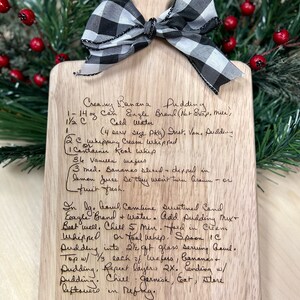 Creamy Banana Pudding
1 - 14 oz Can Eagle Brand (Not Evap. Milk)
1 1/2 C Cold Water
1 (4 serv size pkg) Inst. Van. Pudding
2 C Whipping Cream Whipped
1 Container Kool Whip
36 Vanilla wafers
3 med. Bananas sliced - dipped in
lemon juice so they won't turn brown - or
fruit fresh.
In lg. bowl Combine Sweetened Cond.
Eagle Brand & Water. Add Pudding Mix.
Beat well. Chill 5 min. fold in Cream
Whipped or Kool Whip. Spoon 1 C
Pudding into 2 1/2 qt glass serving bowl.
Top w/ 1/3 each of Wafers, Bananas &
Pudding. Repeat layers 2X. Ending w/
Pudding. Chill - Garnish, Eat, Store
leftovers in Refrig.